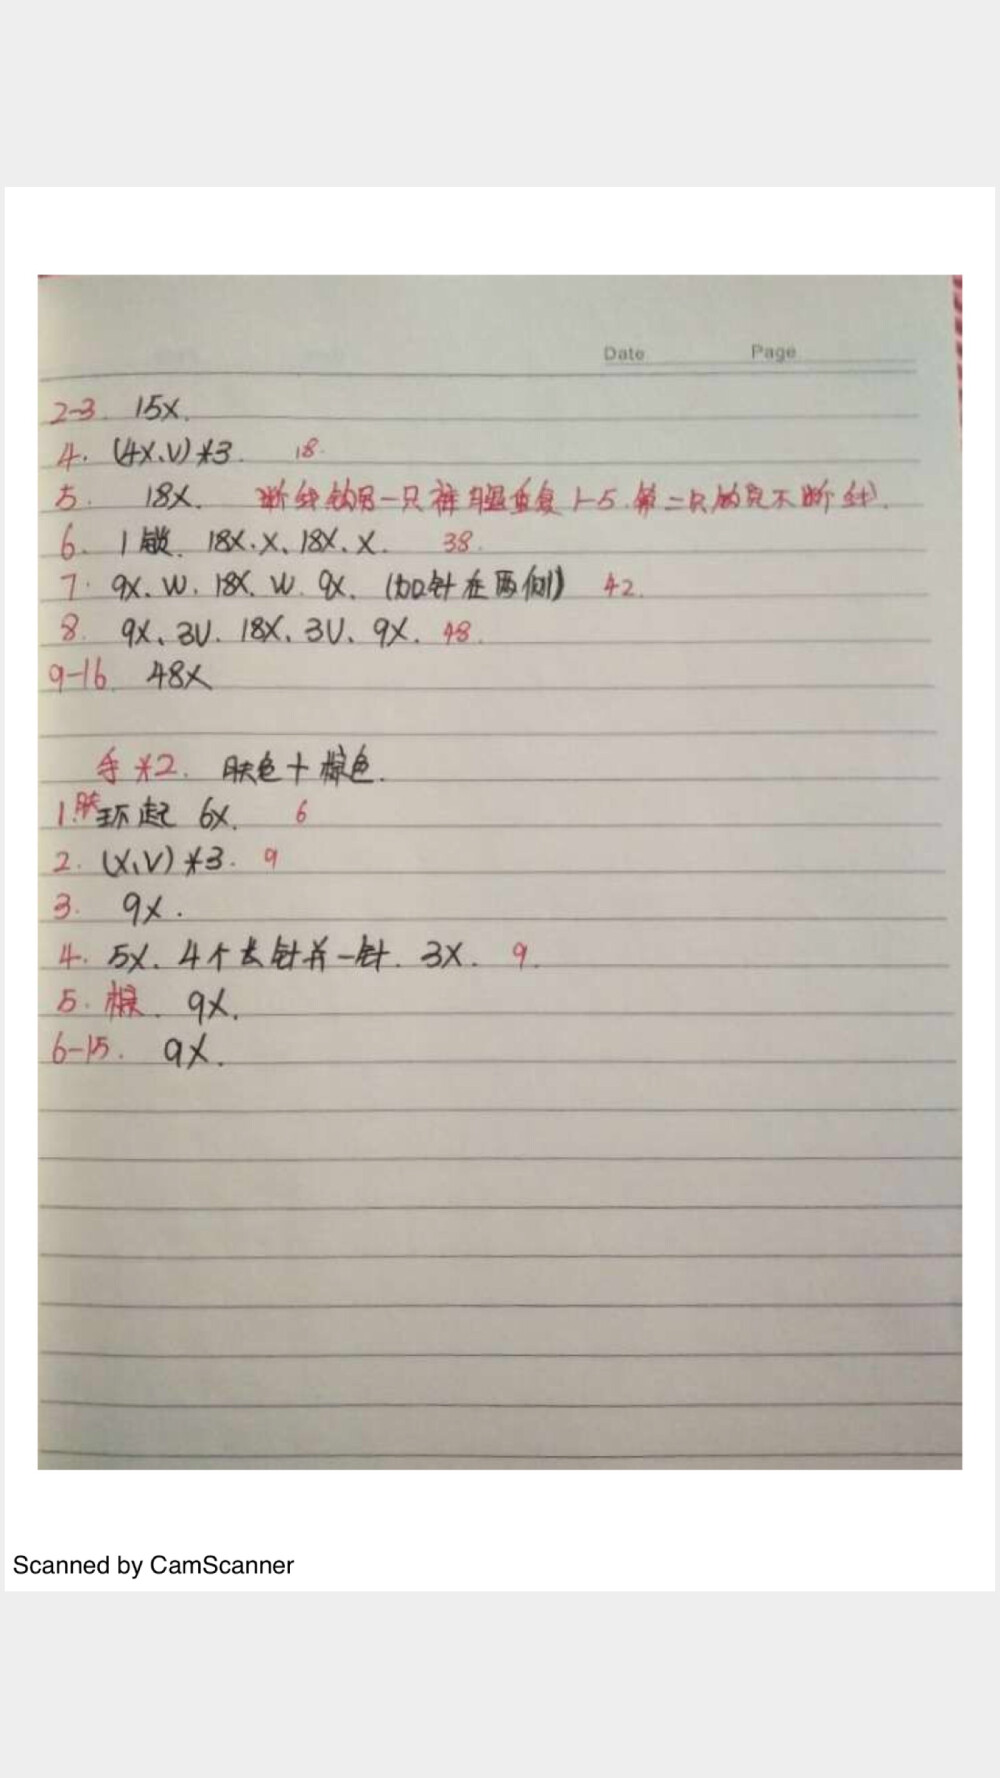 Date Page
2-3. 15X.
4. (4X、V)*3. 18.
5. 18X. 断线钩另一只裤腿重复1-5.第二只钩完不断线).
6. 1锁. 18X、X、18X、X. 38.
7. 9X、W、18X、W、9X. (加针在两侧) 42.
8. 9X、3V、18X、3V、9X. 48.
9-16. 48X
手*2. 肤色+棕色.
1.肤 环起 6X. 6
2. (X、V)*3. 9
3. 9X.
4. 5X、4个长针并一针、3X. 9.
5. 棕. 9X.
6-15. 9X.
Scanned by CamScanner